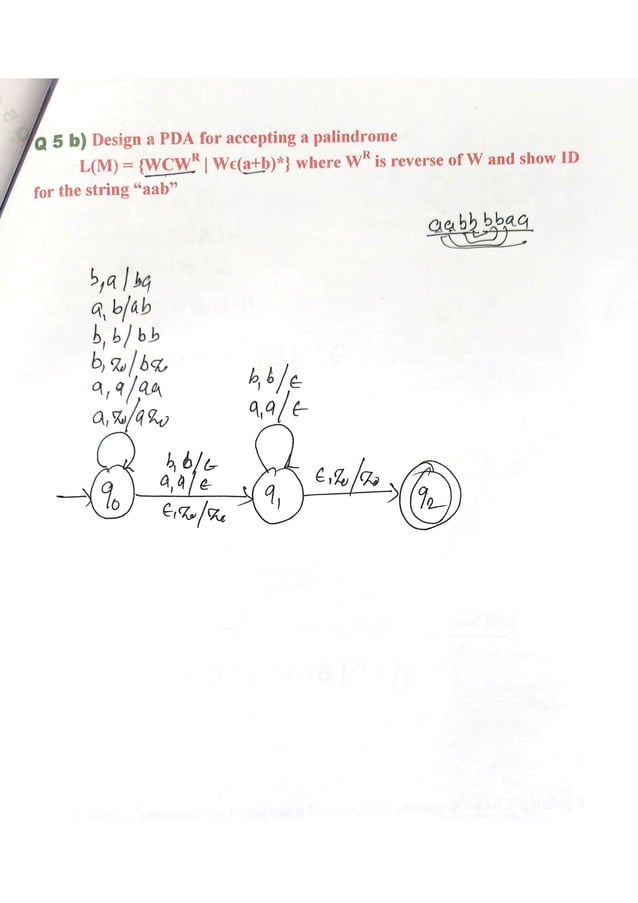 Q 5 b) Design a PDA for accepting a palindrome
L(M) = {WCWᴿ | Wϵ(a+b)*} where Wᴿ is reverse of W and show ID
for the string “aab”
aabbbbaa
b,a/ba
a,b/ab
b,b/bb
b,z₀/bz₀
a,a/aa
a,z₀/az₀
b,b/ϵ
a,a/ϵ
b,b/ϵ
a,a/ϵ
ϵ,z₀/z₀
ϵ,z₀/z₀
q₀
q₁
q₂